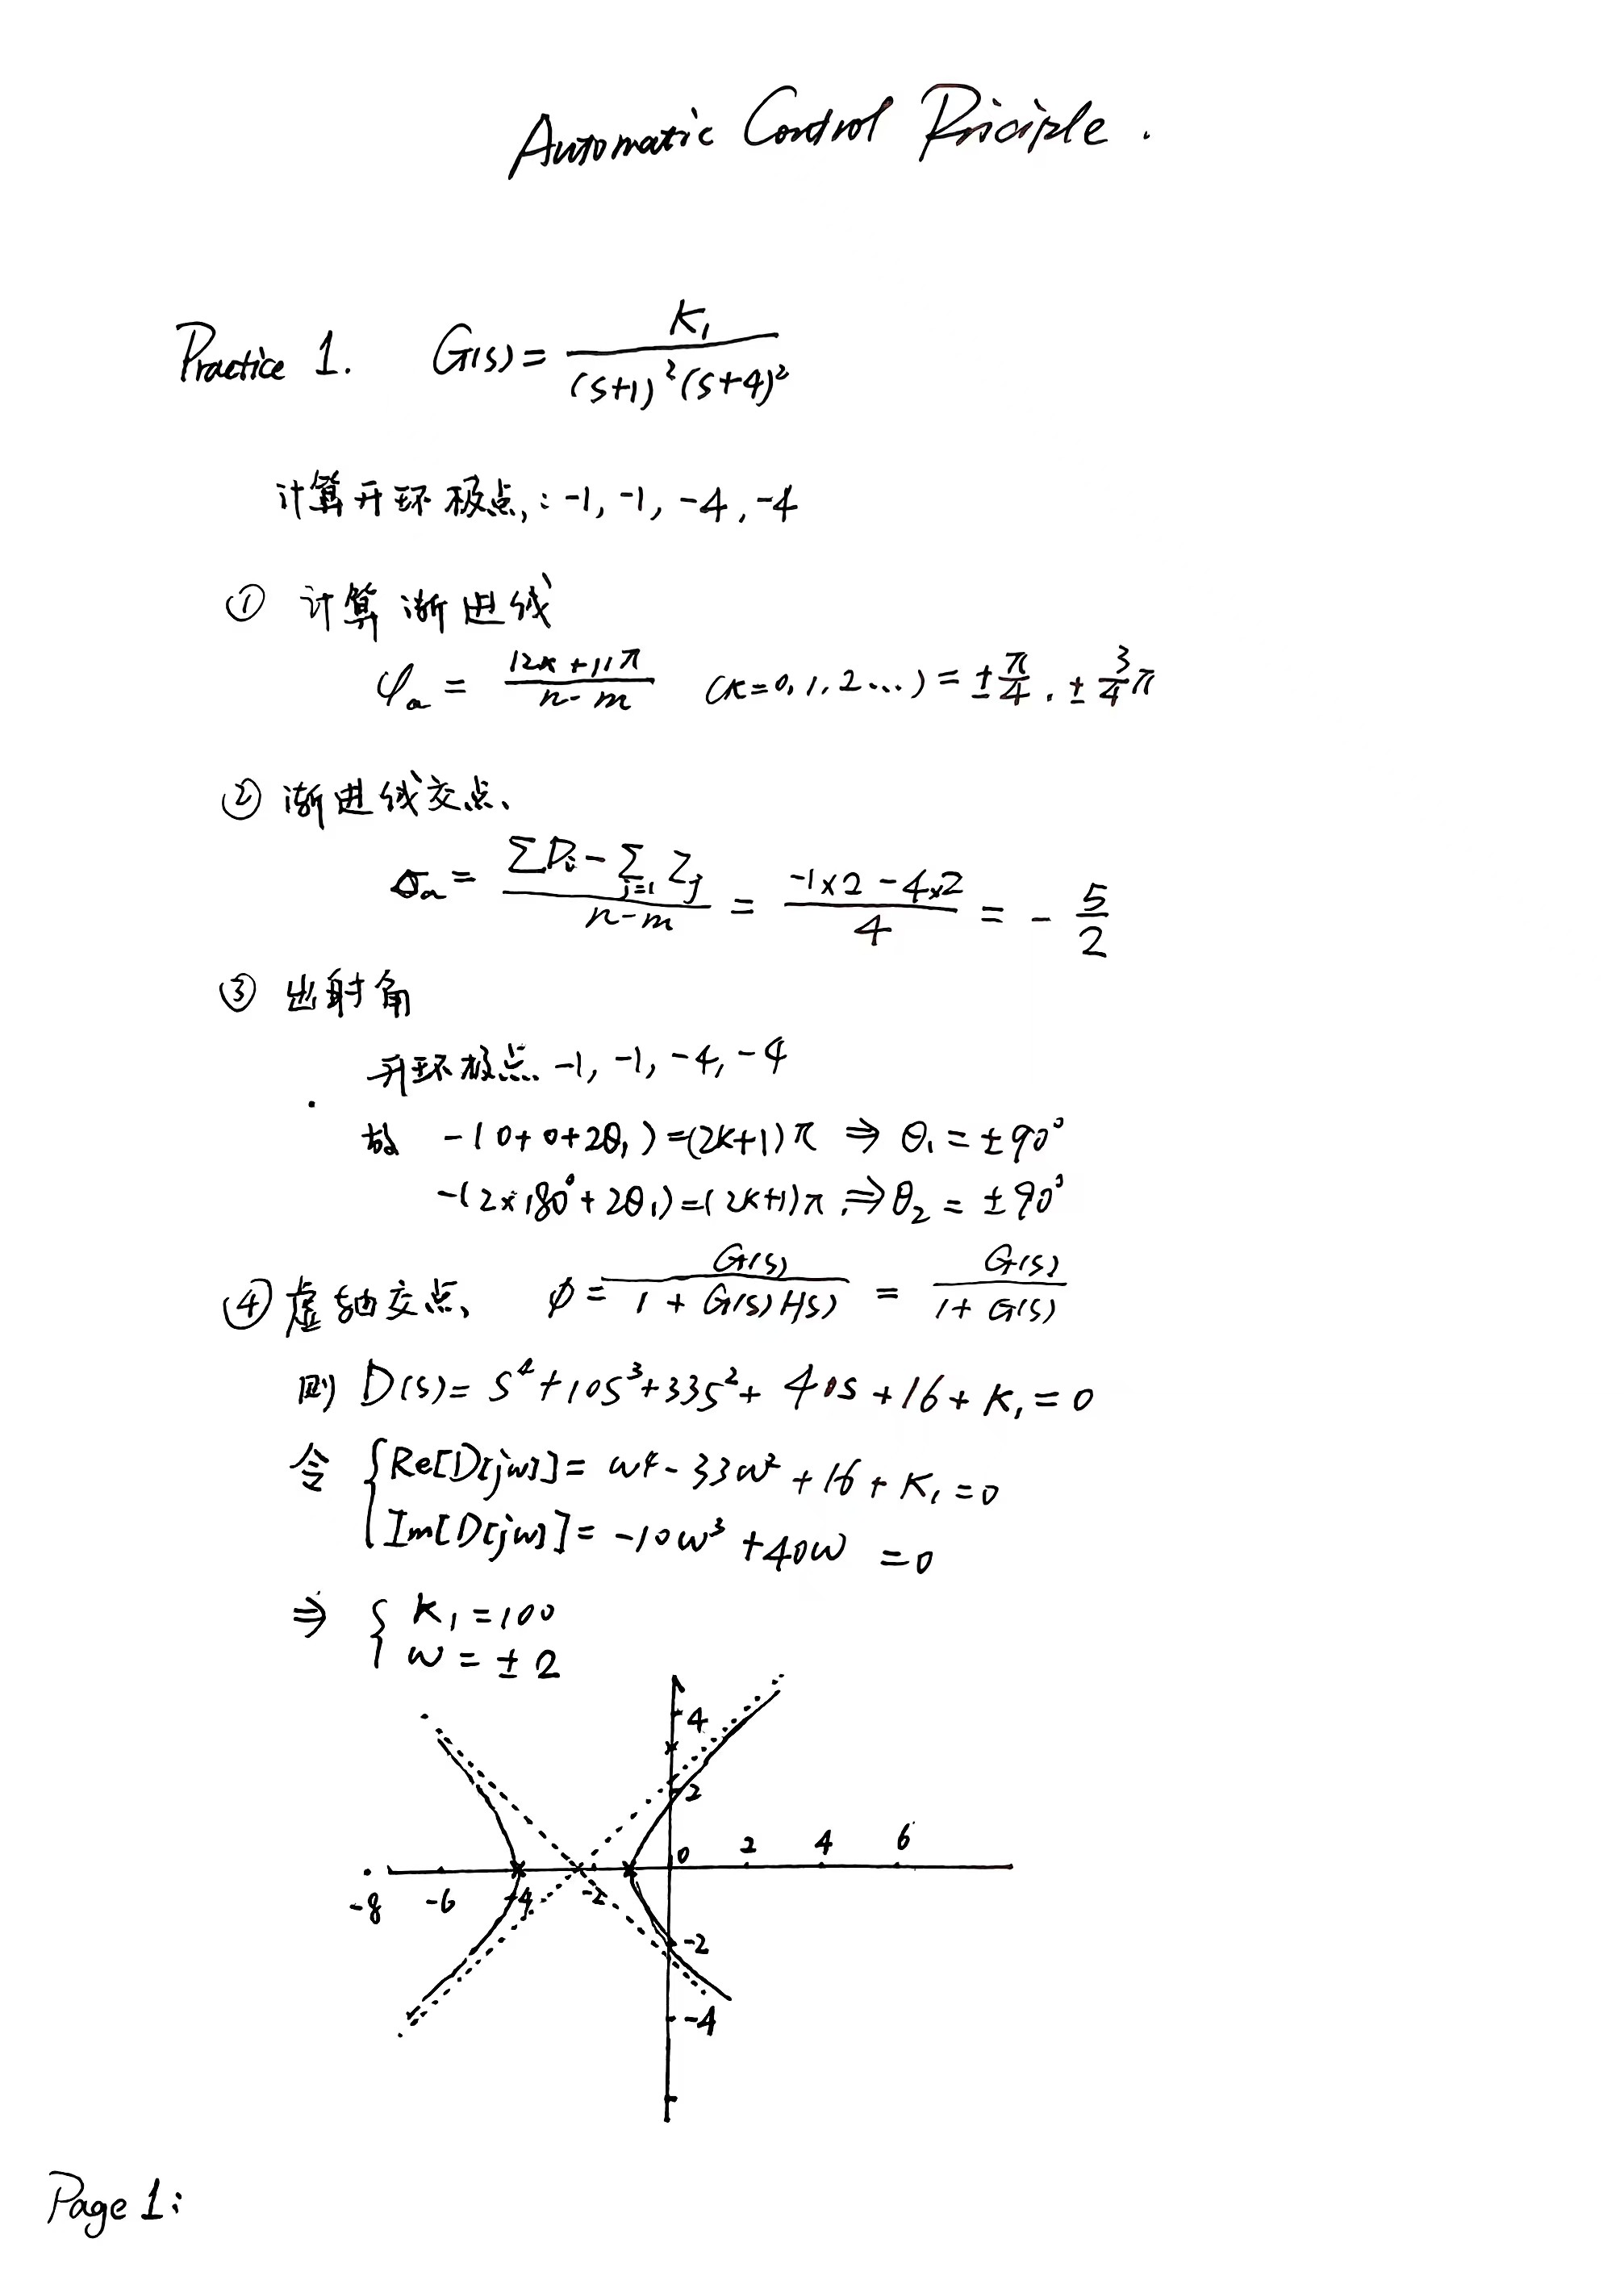 Automatic Control Priciple.
Practice 1. G(s) = K₁ / (s+1)²(s+4)²
计算开环极点: -1, -1, -4, -4
① 计算渐进线
φa = (2K+1)π / n-m (K=0,1,2...) = ±π/4, ±3/4π
② 渐进线交点、
σa = ∑Pi - ∑j=1 Zj / n-m = -1×2 -4×2 / 4 = -5/2
③ 出射角
开环极点 -1, -1, -4, -4
故 -(0+0+2θ₁)=(2K+1)π ⇒ θ₁ = ±90°
-(2×180°+2θ₁)=(2K+1)π ⇒ θ₂ = ±90°
④ 虚轴交点、 φ = G(s) / 1+G(s)H(s) = G(s) / 1+G(s)
则 D(s) = s⁴+10s³+33s²+40s+16+K₁=0
令 { Re[D[jw]] = w⁴-33w²+16+K₁=0
Im[D[jw]] = -10w³+40w=0
⇒ { K₁=100
w = ±2
4
2
0 2 4 6
-8 -6 -4 -2
-2
-4
Page 1: